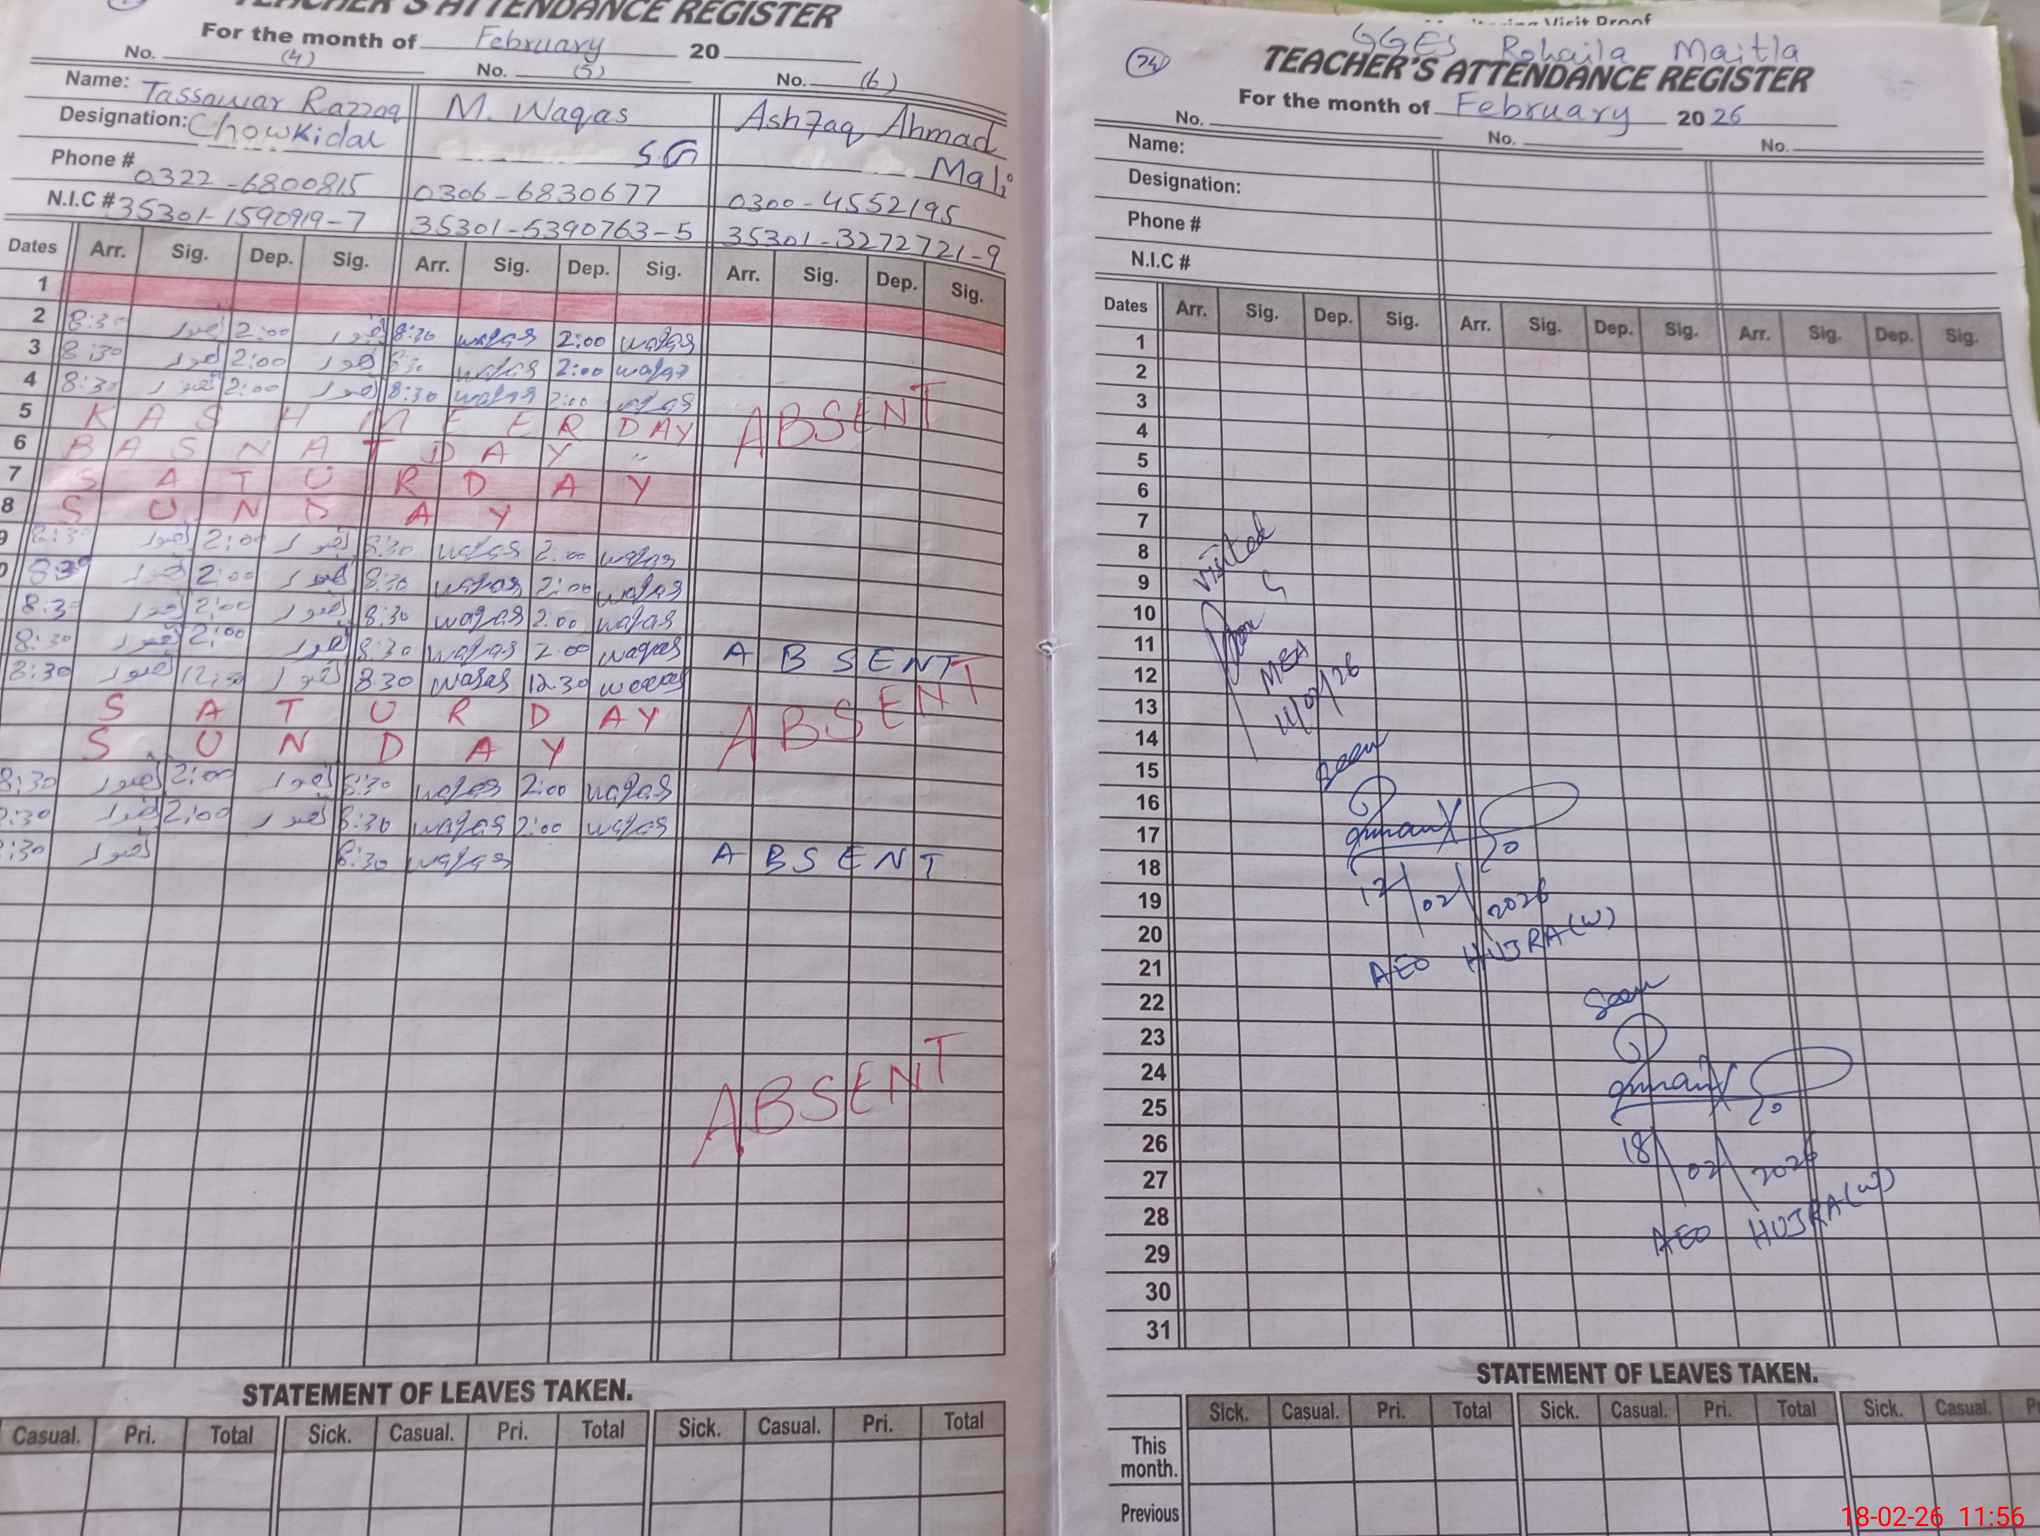 TEACHER'S ATTENDANCE REGISTER
For the month of February 20
No. (4) No. (5) No. (6)
Name: Tassawar Razzaq M. Waqas Ashfaq Ahmad
Designation: Chowkidar SG Mali
Phone # 0322-6800815 0306-6830677 0300-4552195
N.I.C # 35301-1590919-7 35301-5390763-5 35301-3272721-9
Dates Arr. Sig. Dep. Sig. Arr. Sig. Dep. Sig. Arr. Sig. Dep. Sig.
1
2 8:30 2:00 8:30 waqas 2:00 waqas
3 8:30 2:00 8:30 waqas 2:00 waqas
4 8:30 2:00 8:30 waqas 2:00 waqas
5 KASHMEER DAY ABSENT
6 BASNAT DAY "
7 SATURDAY
8 SUNDAY
9 8:30 2:00 8:30 waqas 2:00 waqas
0 8:30 2:00 8:30 waqas 2:00 waqas
8:30 2:00 8:30 waqas 2:00 waqas
8:30 2:00 8:30 waqas 2:00 waqas ABSENT
8:30 12:30 8:30 waqas 12:30 waqas
SATURDAY ABSENT
SUNDAY
8:30 2:00 8:30 waqas 2:00 waqas
8:30 2:00 8:30 waqas 2:00 waqas
8:30 8:30 waqas ABSENT
ABSENT
STATEMENT OF LEAVES TAKEN.
Casual. Pri. Total Sick. Casual. Pri. Total Sick. Casual. Pri. Total
Visit Proof
GGES Rohaila Maitla
(24)
TEACHER'S ATTENDANCE REGISTER
For the month of February 2026
No. No. No.
Name:
Designation:
Phone #
N.I.C #
Dates Arr. Sig. Dep. Sig. Arr. Sig. Dep. Sig. Arr. Sig. Dep. Sig.
1
2
3
4
5
6
7
8
9
10
11
12
13
14
15
16
17
18
19
20
21
22
23
24
25
26
27
28
29
30
31
Visited
MEA
11/02/26
Seen
17/02/2026
AEO HUJRA (W)
Seen
18/02/2026
AEO HUJRA (W)
STATEMENT OF LEAVES TAKEN.
Sick. Casual. Pri. Total Sick. Casual. Pri. Total Sick. Casual.
This month.
Previous
18-02-26 11:56